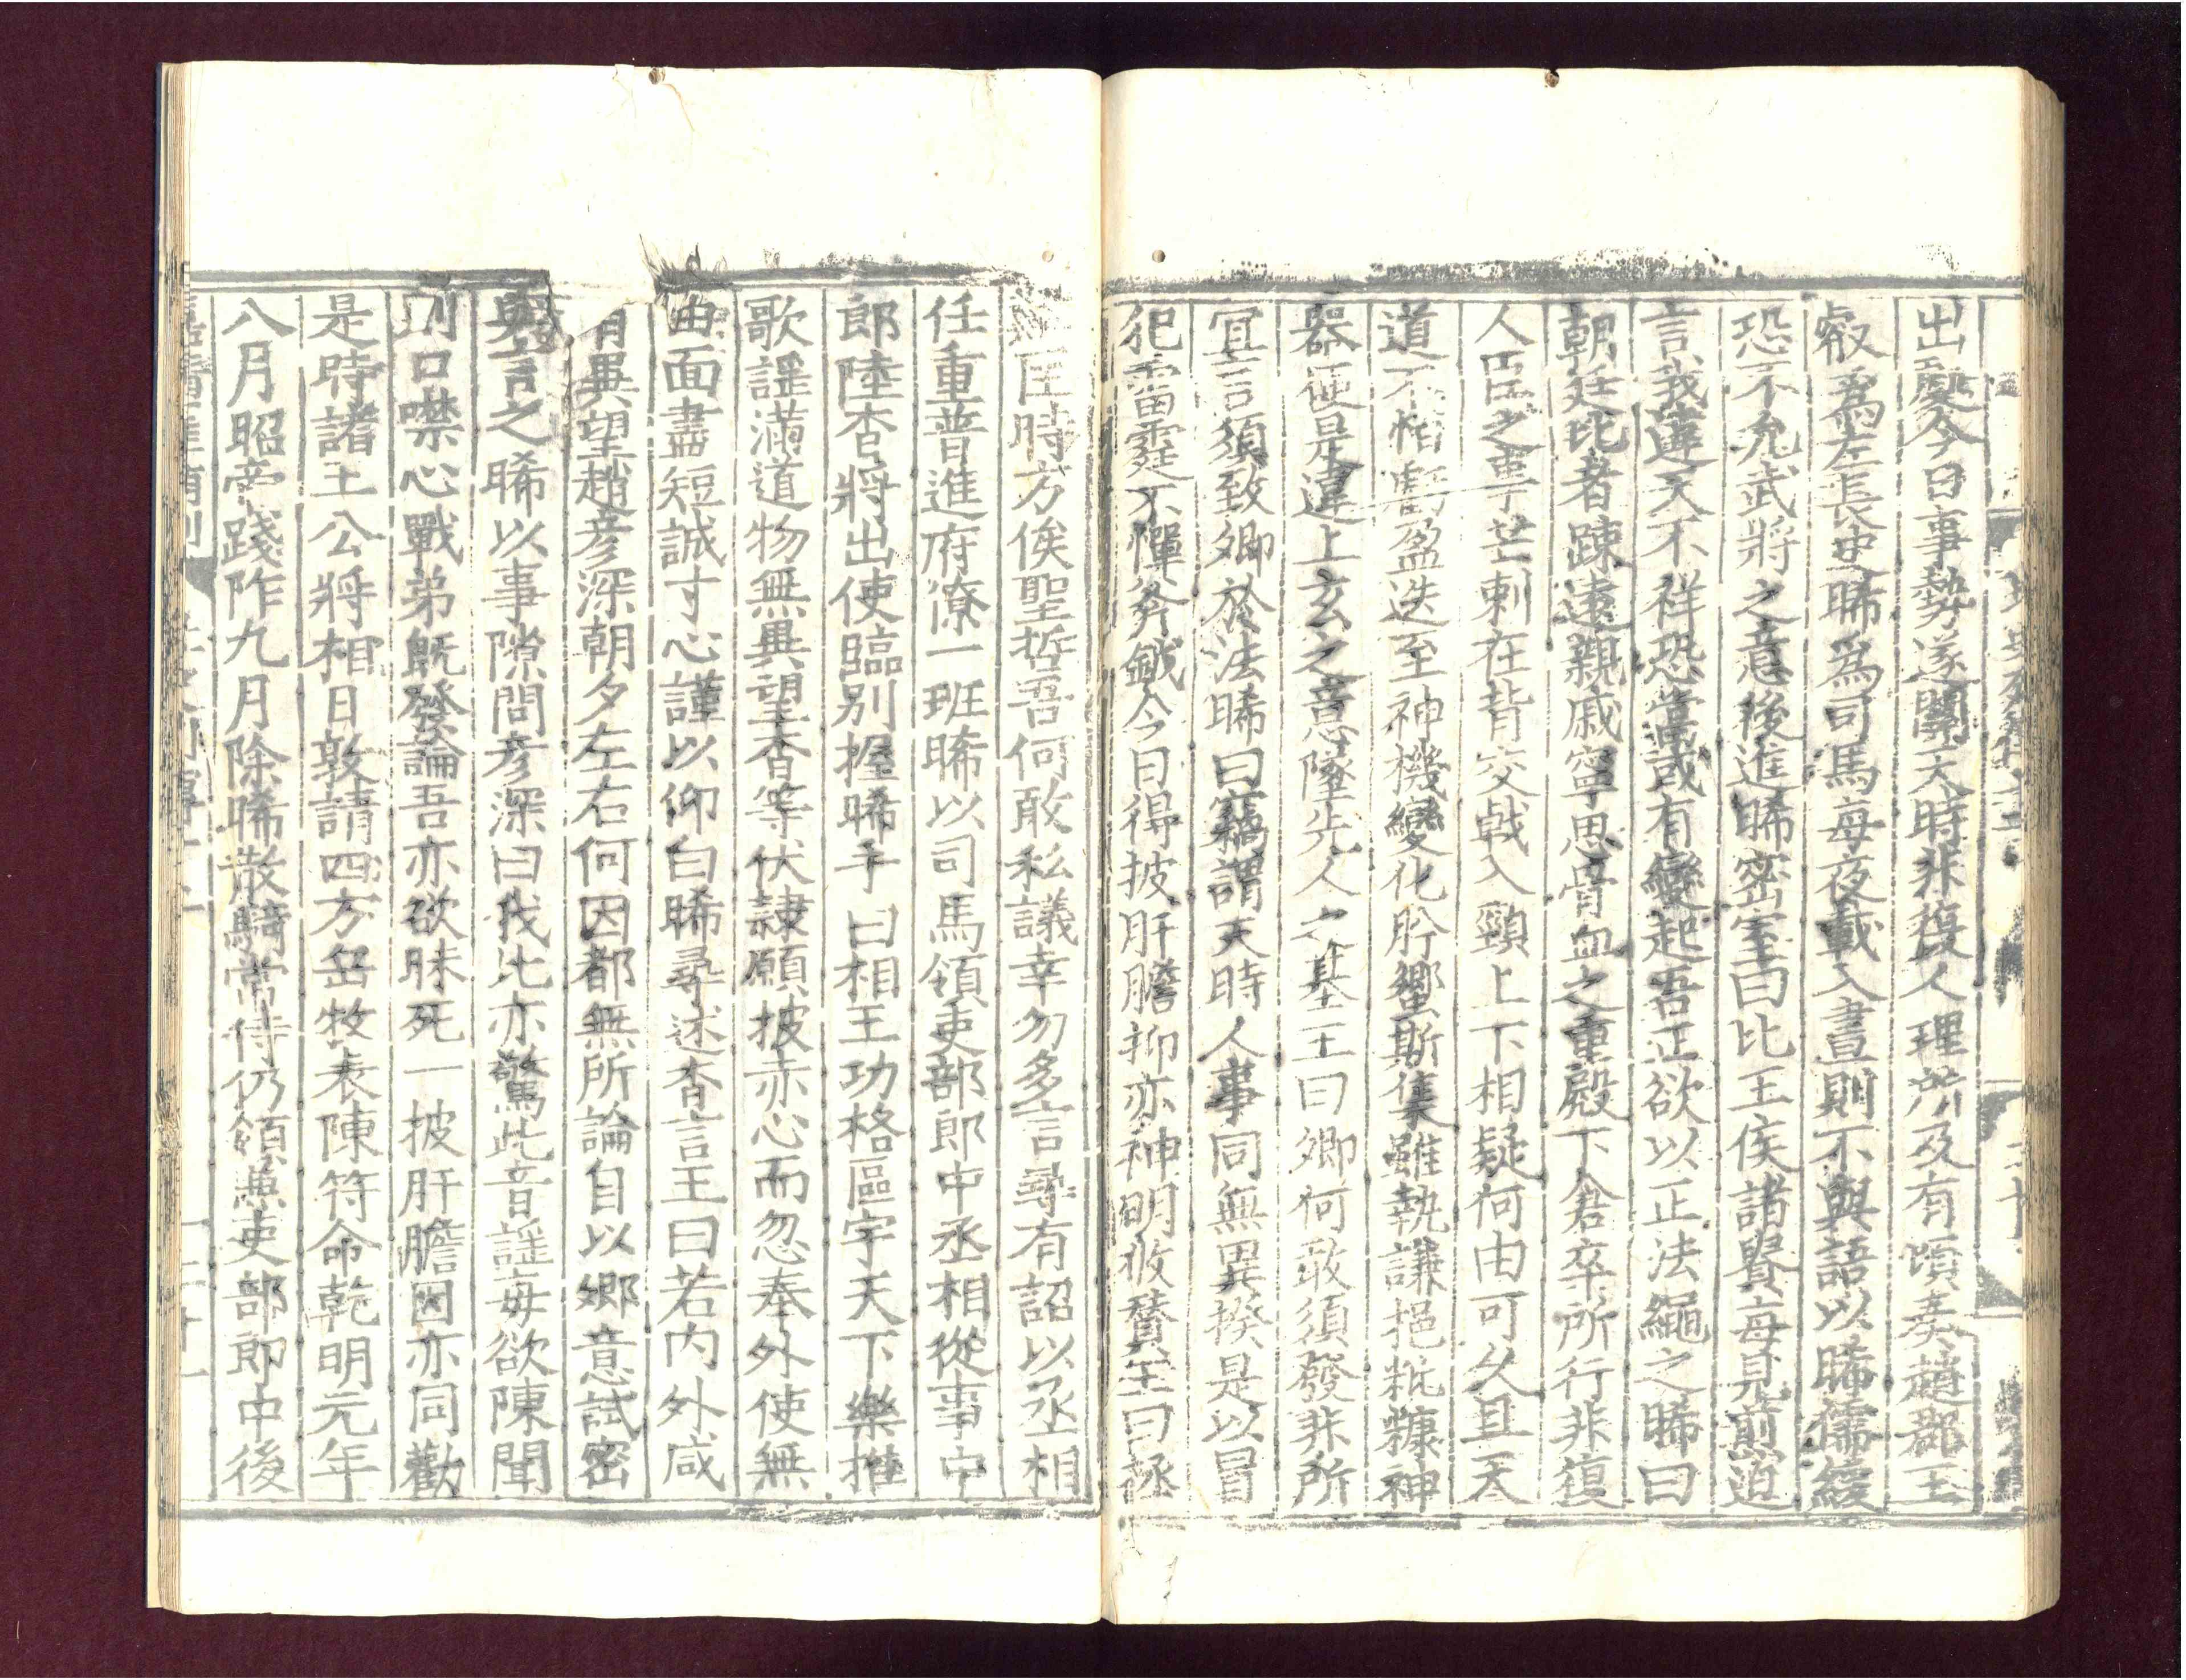 出處今日事勢遂關天時非復人理所及有頃奏趙郡王
叡爲左長史晞爲司馬每夜載入晝則不與語以晞儒緩
恐不允武將之意後進晞密室曰比王侯諸貴每見煎迫
言我違天不祥恐當或有變起吾正欲以正法繩之晞曰
朝廷比者踈遠親戚寧思骨血之重殿下倉卒所行非復
人臣之事芒刺在背交戟入頸上下相疑何由可久且天
道不恒虧盈迭至神機變化肸蠁斯集雖執謙挹粃糠神
器便是違上玄之意墜先人之基王曰卿何敢須發非所
宜言須致卿於法晞曰竊謂天時人事同無異揆是以冒
犯雷霆不憚斧鉞今日得披肝膽抑亦神明攸贊王曰拯
匡時方俟聖哲吾何敢私議幸勿多言尋有詔以丞相
任重普進府僚一班晞以司馬領吏部郎中丞相從事中
郎陸杳將出使臨別握晞手曰相王功格區宇天下樂推
歌謡滿道物無異望杳等伏隷願披赤心而忽奉外使無
由面盡短誠寸心謹以仰白晞尋述杳言王曰若内外咸
有異望趙彦深朝夕左右何因都無所論自以卿意試密
與言之晞以事隙問彦深曰我比亦驚此音謡每欲陳聞
則口噤心戰弟既發論吾亦欲昧死一披肝膽因亦同勸
是時諸王公將相日敦請四方岳牧表陳符命乾明元年
八月昭帝踐阼九月除晞散騎常侍仍領兼吏部郎中後